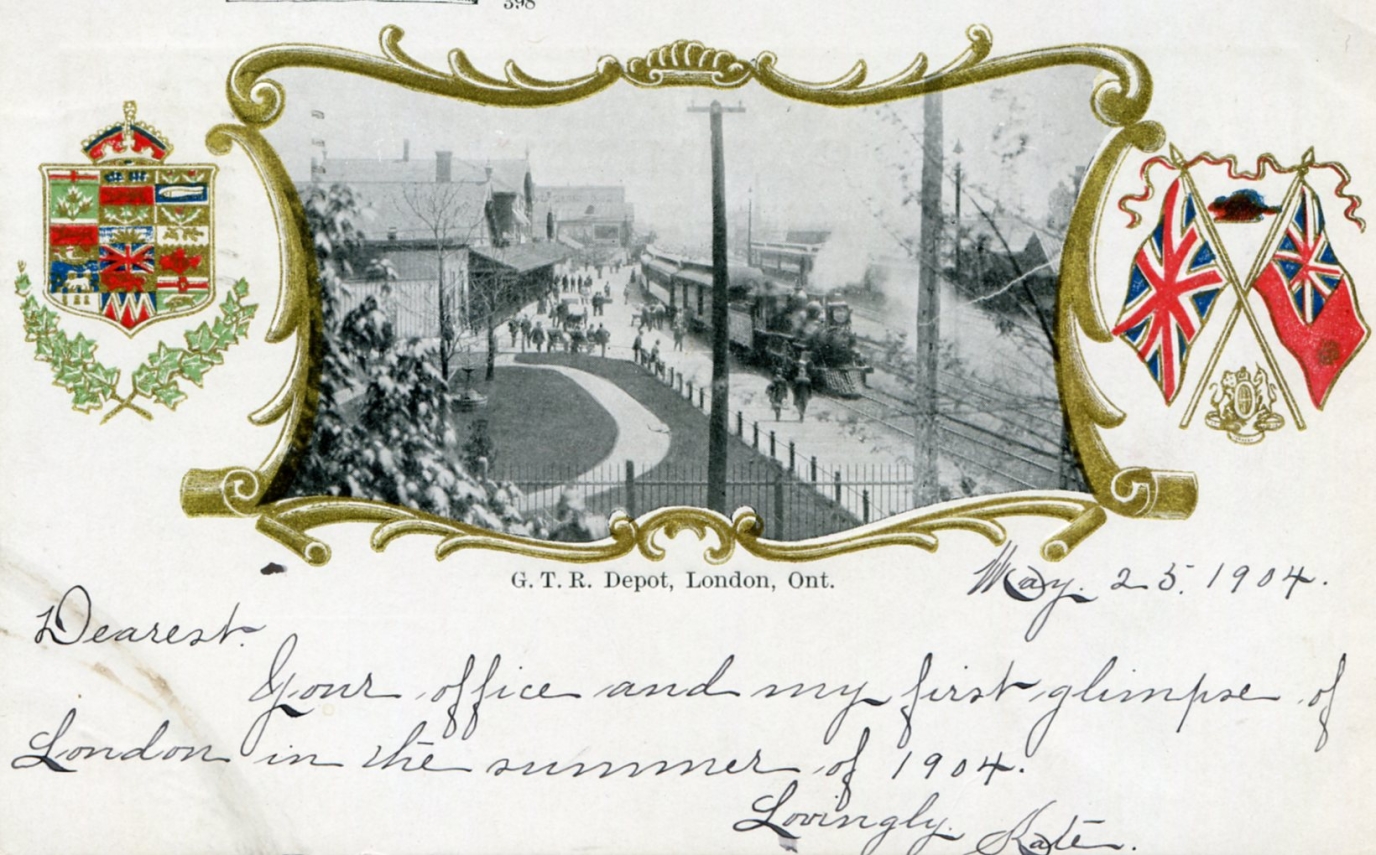 398
G. T. R. Depot, London, Ont.
May. 25. 1904.
Dearest.
Your office and my first glimpse of
London in the summer of 1904.
Lovingly. Kate.